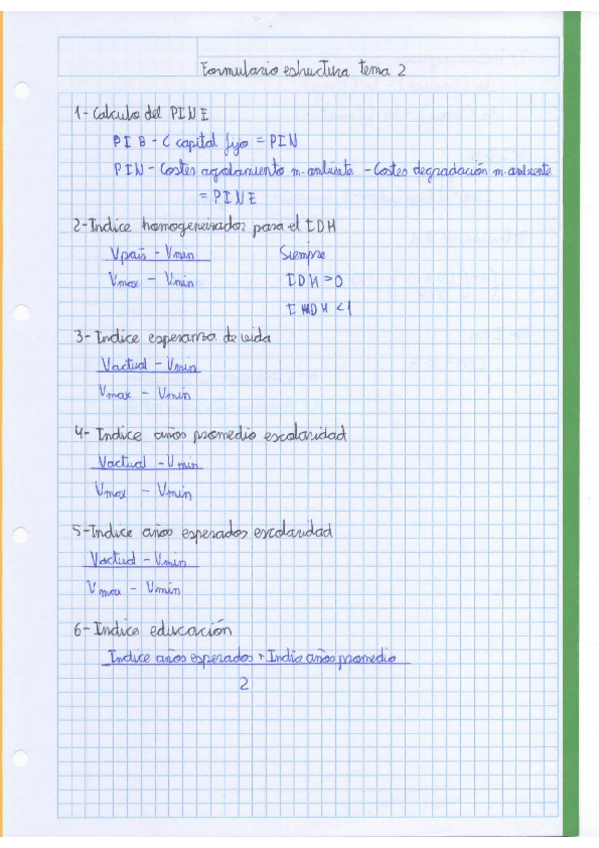 Formulario estructura tema 2
1- Calculo del PINE
PIB - C capital fijo = PIN
PIN - Costes agotamiento m. ambiente - Costes degradación m. ambiente
= PINE
2- Indice homogeneizador para el IDH
Vpais - Vmin Siempre
Vmax - Vmin IDH > 0
IDH < 1
3- Indice esperanza de vida
Vactual - Vmin
Vmax - Vmin
4- Indice años promedio escolaridad
Vactual - Vmin
Vmax - Vmin
5- Indice años esperados escolaridad
Vactual - Vmin
Vmax - Vmin
6- Indice educación
Indice años esperados + Indice años promedio
2